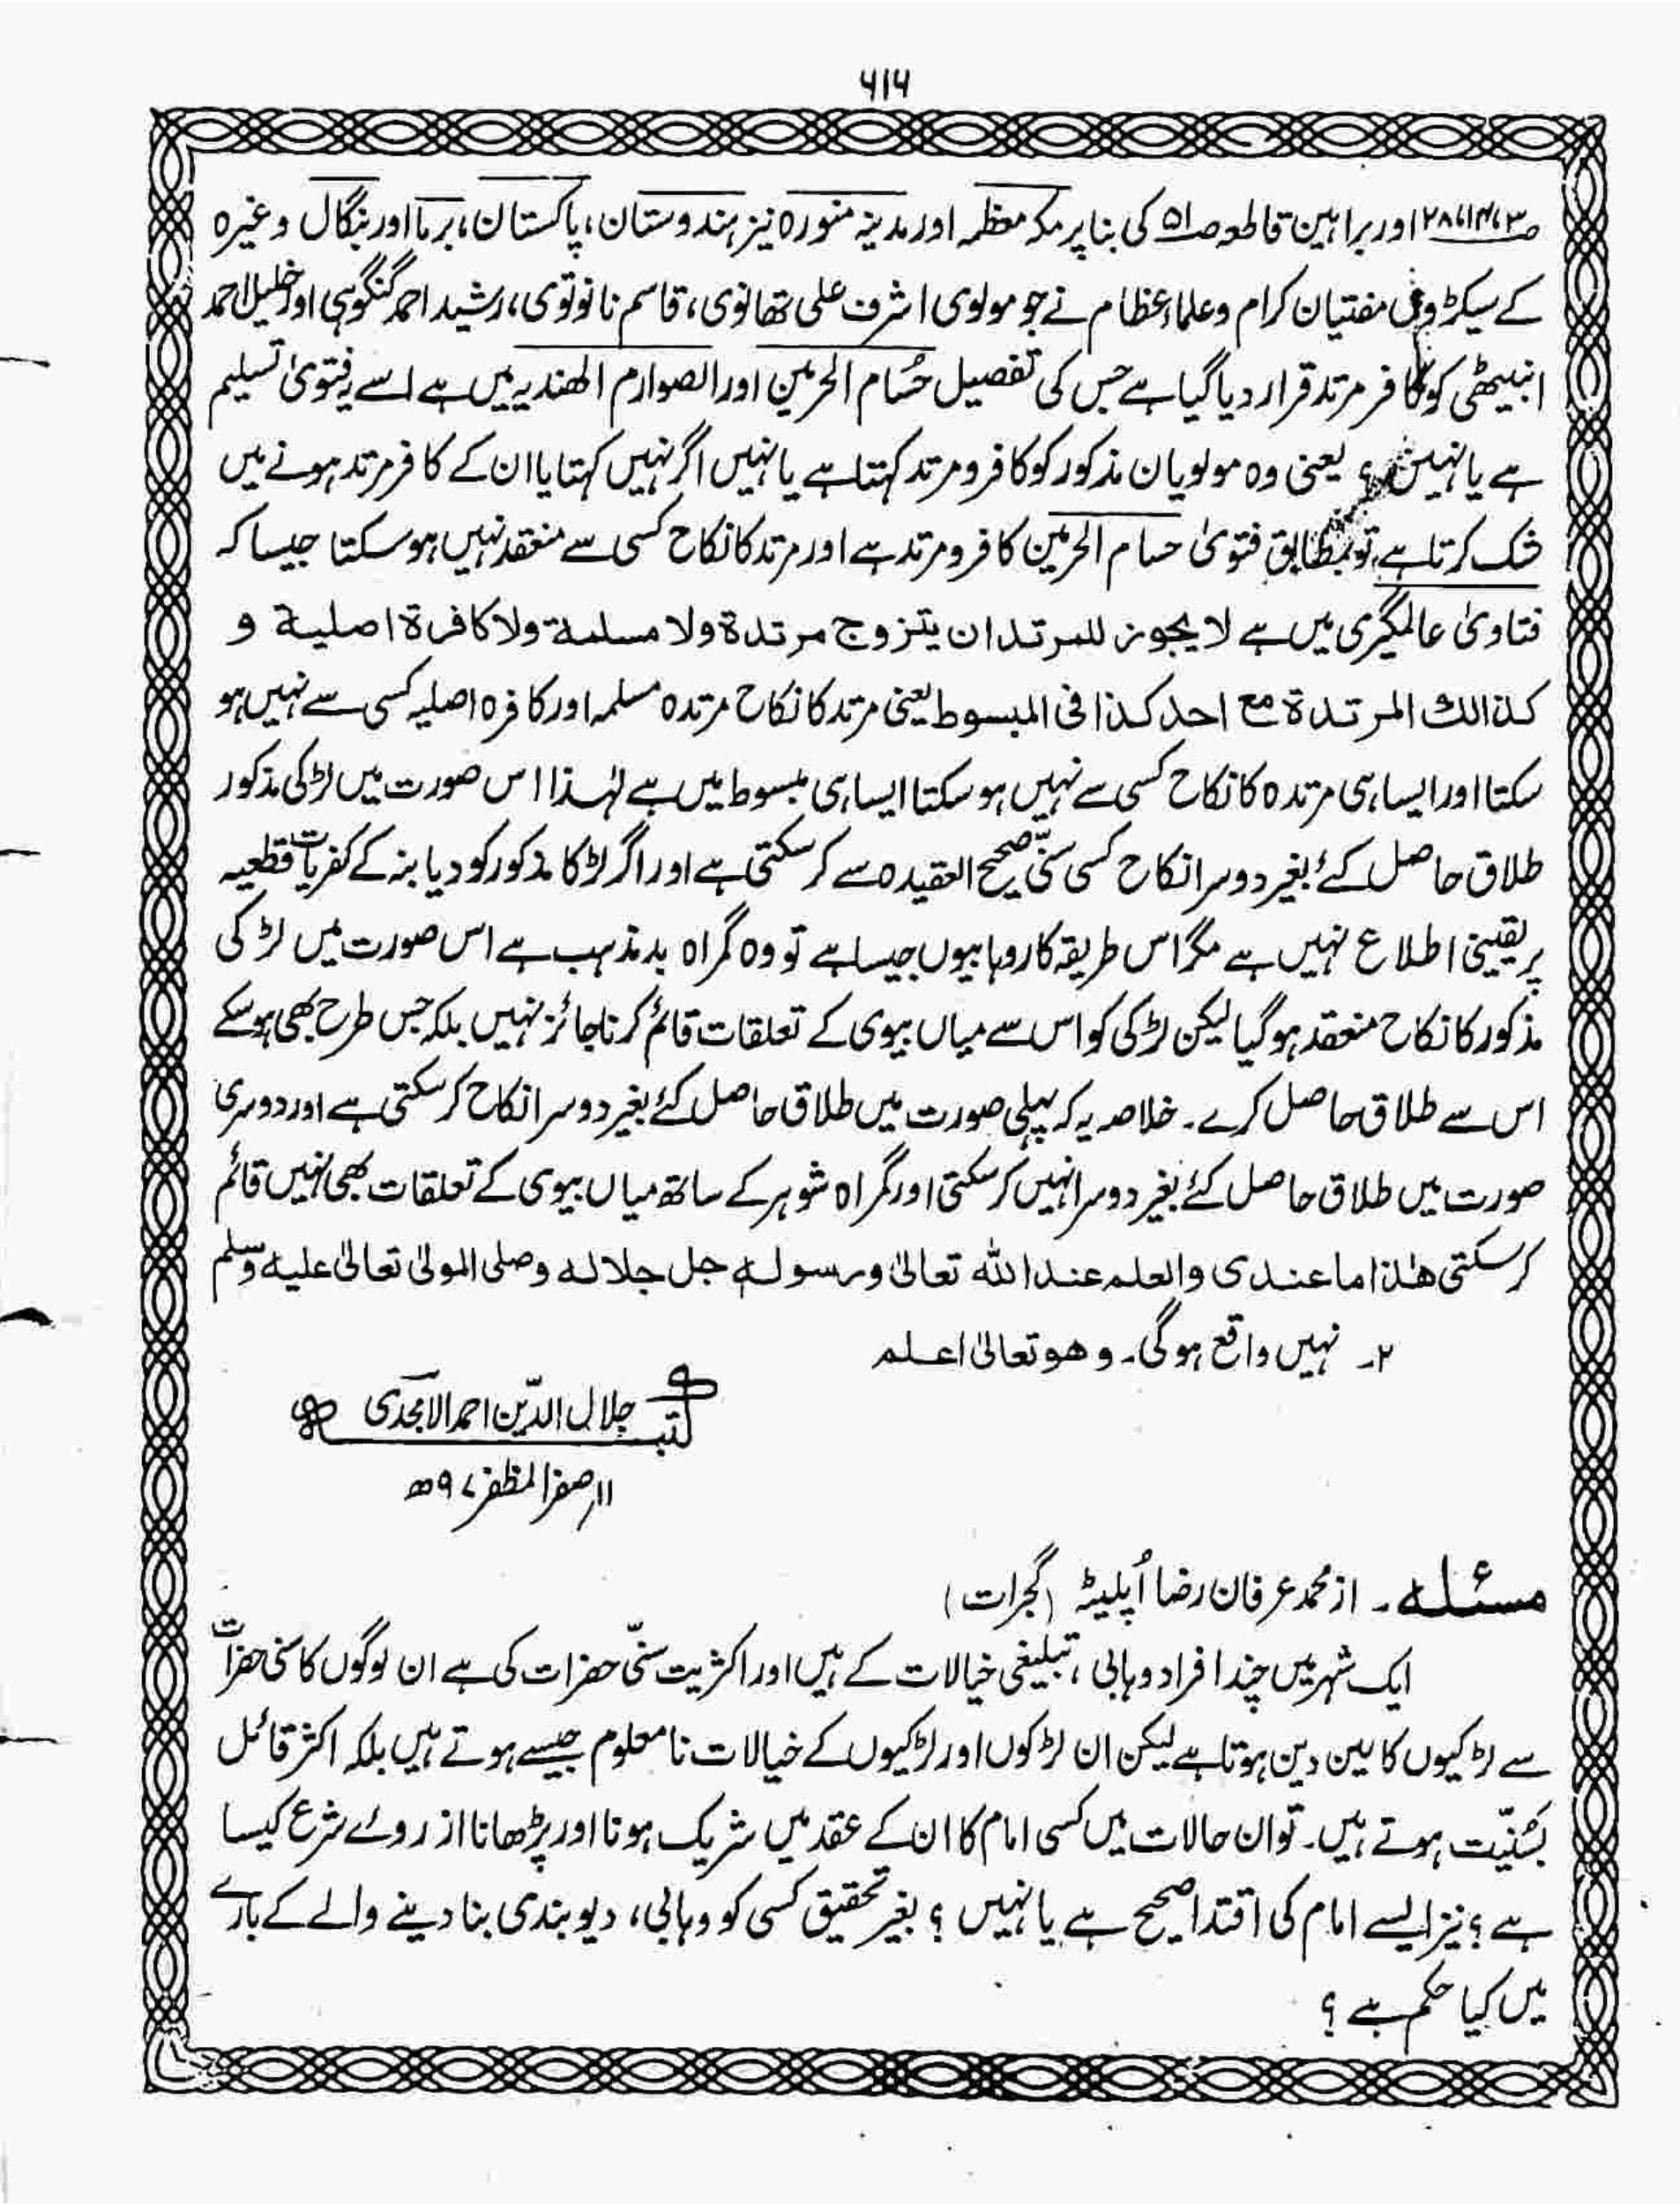 ۶۱۶
ص۳، ۱۴، ۲۸ اور براہین قاطعہ ص۵۱ کی بنا پر مکہ معظمہ اور مدینہ منورہ نیز ہندوستان، پاکستان، برما اور بنگال وغیرہ
کے سیکڑوں مفتیان کرام و علماء عظام نے جو مولوی اشرف علی تھانوی، قاسم نانوتوی، رشید احمد گنگوہی اور خلیل احمد
انبیٹھی کو کافر مرتد قرار دیا گیا ہے جس کی تفصیل حسُام الحرمین اور الصوارم الھندیہ میں ہے اسے یہ فتویٰ تسلیم
ہے یا نہیں؟ یعنی وہ مولویان مذکور کو کافر و مرتد کہتا ہے یا نہیں اگر نہیں کہتا یا ان کے کافر مرتد ہونے میں
شک کرتا ہے تو بمطابق فتویٰ حسام الحرمین کافر و مرتد ہے اور مرتد کا نکاح کسی سے منعقد نہیں ہو سکتا جیسا کہ
فتاویٰ عالمگیری میں ہے لا یجوز للمرتد ان یتزوج مرتدة ولا مسلمة ولا کافرة اصلیة و
کذالک المرتدة مع احد کذا فی المبسوط یعنی مرتد کا نکاح مرتدہ مسلمہ اور کافرہ اصلیہ کسی سے نہیں ہو
سکتا اور ایسا ہی مرتدہ کا نکاح کسی سے نہیں ہو سکتا ایسا ہی مبسوط میں ہے لہٰذا اس صورت میں لڑکی مذکور
طلاق حاصل کئے بغیر دوسرا نکاح کسی سنّی صحیح العقیدہ سے کر سکتی ہے اور اگر لڑکا مذکور کو دیابنہ کے کفریات قطعیہ
پر یقینی اطلاع نہیں ہے مگر اس طریقہ کار وہابیوں جیسا ہے تو وہ گمراہ بد مذہب ہے اس صورت میں لڑکی
مذکور کا نکاح منعقد ہو گیا لیکن لڑکی کو اس سے میاں بیوی کے تعلقات قائم کرنا جائز نہیں بلکہ جس طرح بھی ہو سکے
اس سے طلاق حاصل کرے۔ خلاصہ یہ کہ پہلی صورت میں طلاق حاصل کئے بغیر دوسرا نکاح کر سکتی ہے اور دوسری
صورت میں طلاق حاصل کئے بغیر دوسرا نہیں کر سکتی اور گمراہ شوہر کے ساتھ میاں بیوی کے تعلقات بھی نہیں قائم
کر سکتی ھٰذا ما عندی والعلم عند اللہ تعالیٰ ورسولہ جل جلالہ وصلی المولیٰ تعالیٰ علیہ وسلم
۲۔ نہیں واقع ہوگی۔ وھو تعالیٰ اعلم
کتبہ جلال الدّین احمد الامجدی
۱۱ر صفر المظفر ۹۷ھ
مسئلہ۔ از محمد عرفان رضا اُپلیٹہ (گجرات)
ایک شہر میں چند افراد وہابی، تبلیغی خیالات کے ہیں اور اکثریت سنّی حضرات کی ہے ان لوگوں کا سنی حضرات
سے لڑکیوں کا لین دین ہوتا ہے لیکن ان لڑکوں اور لڑکیوں کے خیالات نامعلوم جیسے ہوتے ہیں بلکہ اکثر قائل
بسُنّیت ہوتے ہیں۔ تو ان حالات میں کسی امام کا ان کے عقد میں شریک ہونا اور پڑھانا از روئے شرع کیسا
ہے؟ نیز ایسے امام کی اقتدا صحیح ہے یا نہیں؟ بغیر تحقیق کسی کو وہابی، دیوبندی بنا دینے والے کے بارے
میں کیا حکم ہے؟